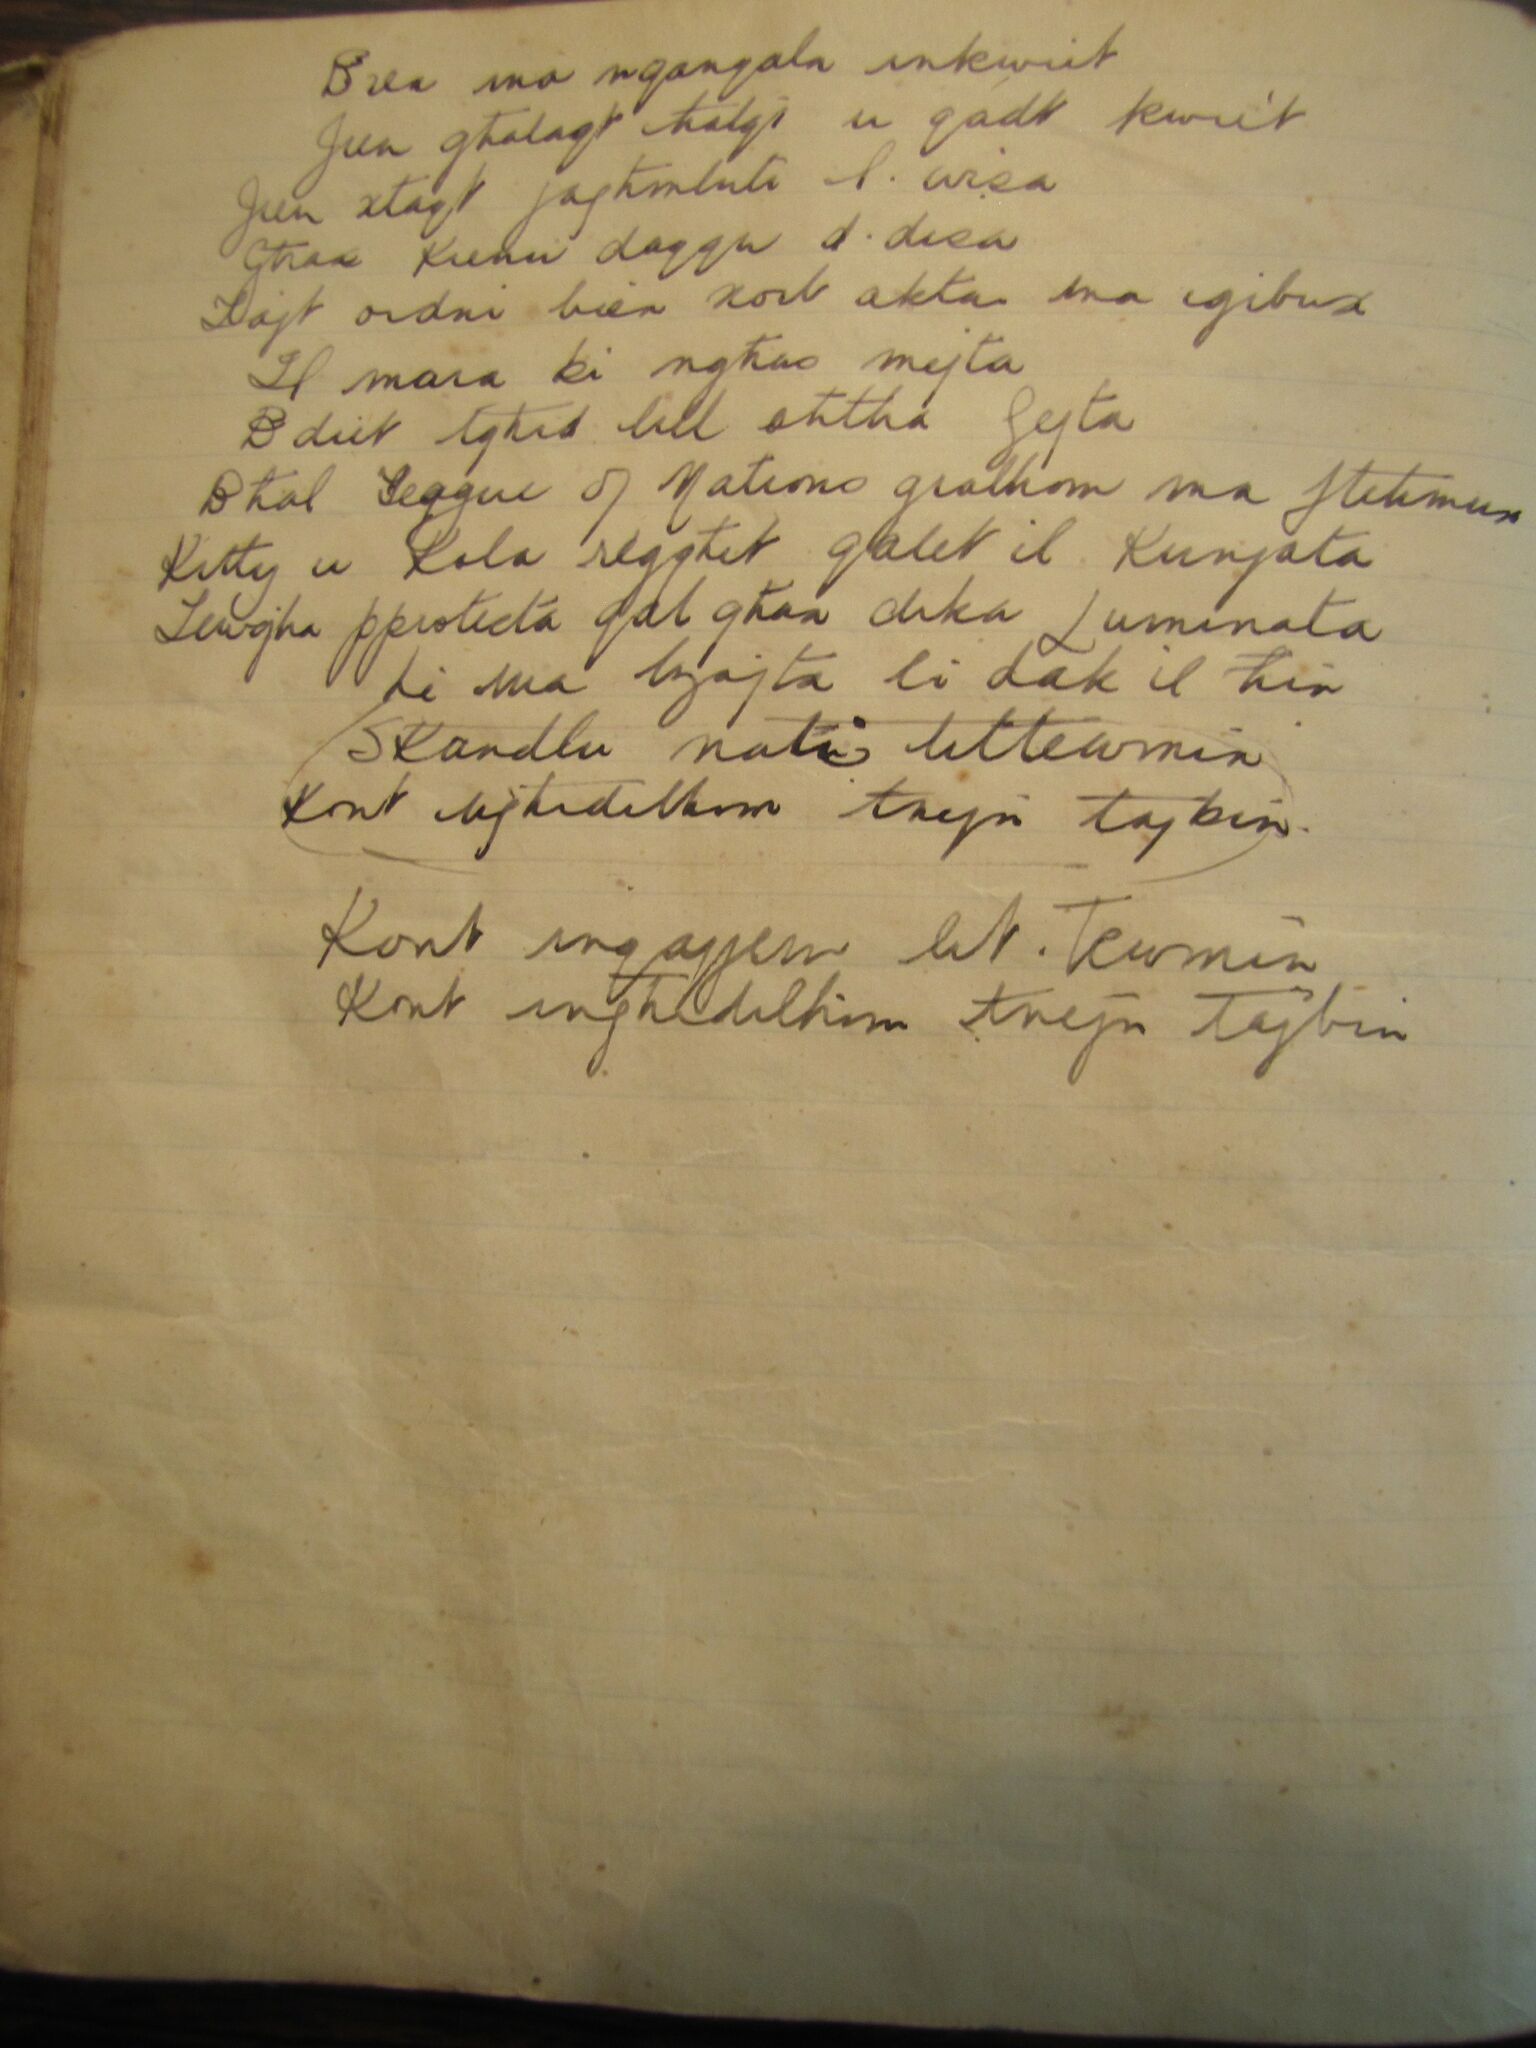 Brea ma ngangala inkwiet
Jien għalaqt ħalqi u qgħadt kwiet
Jien xtaqt jagħmluli l. wisa
Għax Kienu daqqu d. disa
Ħajt ordni biex xort aktar ma iġibux
Il mara ki ngħas mejta
Bdiet tgħid lill oħtha Ġejta
Bħal League of Nations qralhom ma ftehmux
Kitty u Kola reġgħet qalet il Kunjata
Lewġha pproteċta qal għax dika Luminata
Li ma bżajta li dak il ħin
Skandlu nati litTewmin
Kont ingħidilhom tnejn tajbin.
Kont ingajjem lit. Tewmin
Kont ingħidilhom tnejn tajbin